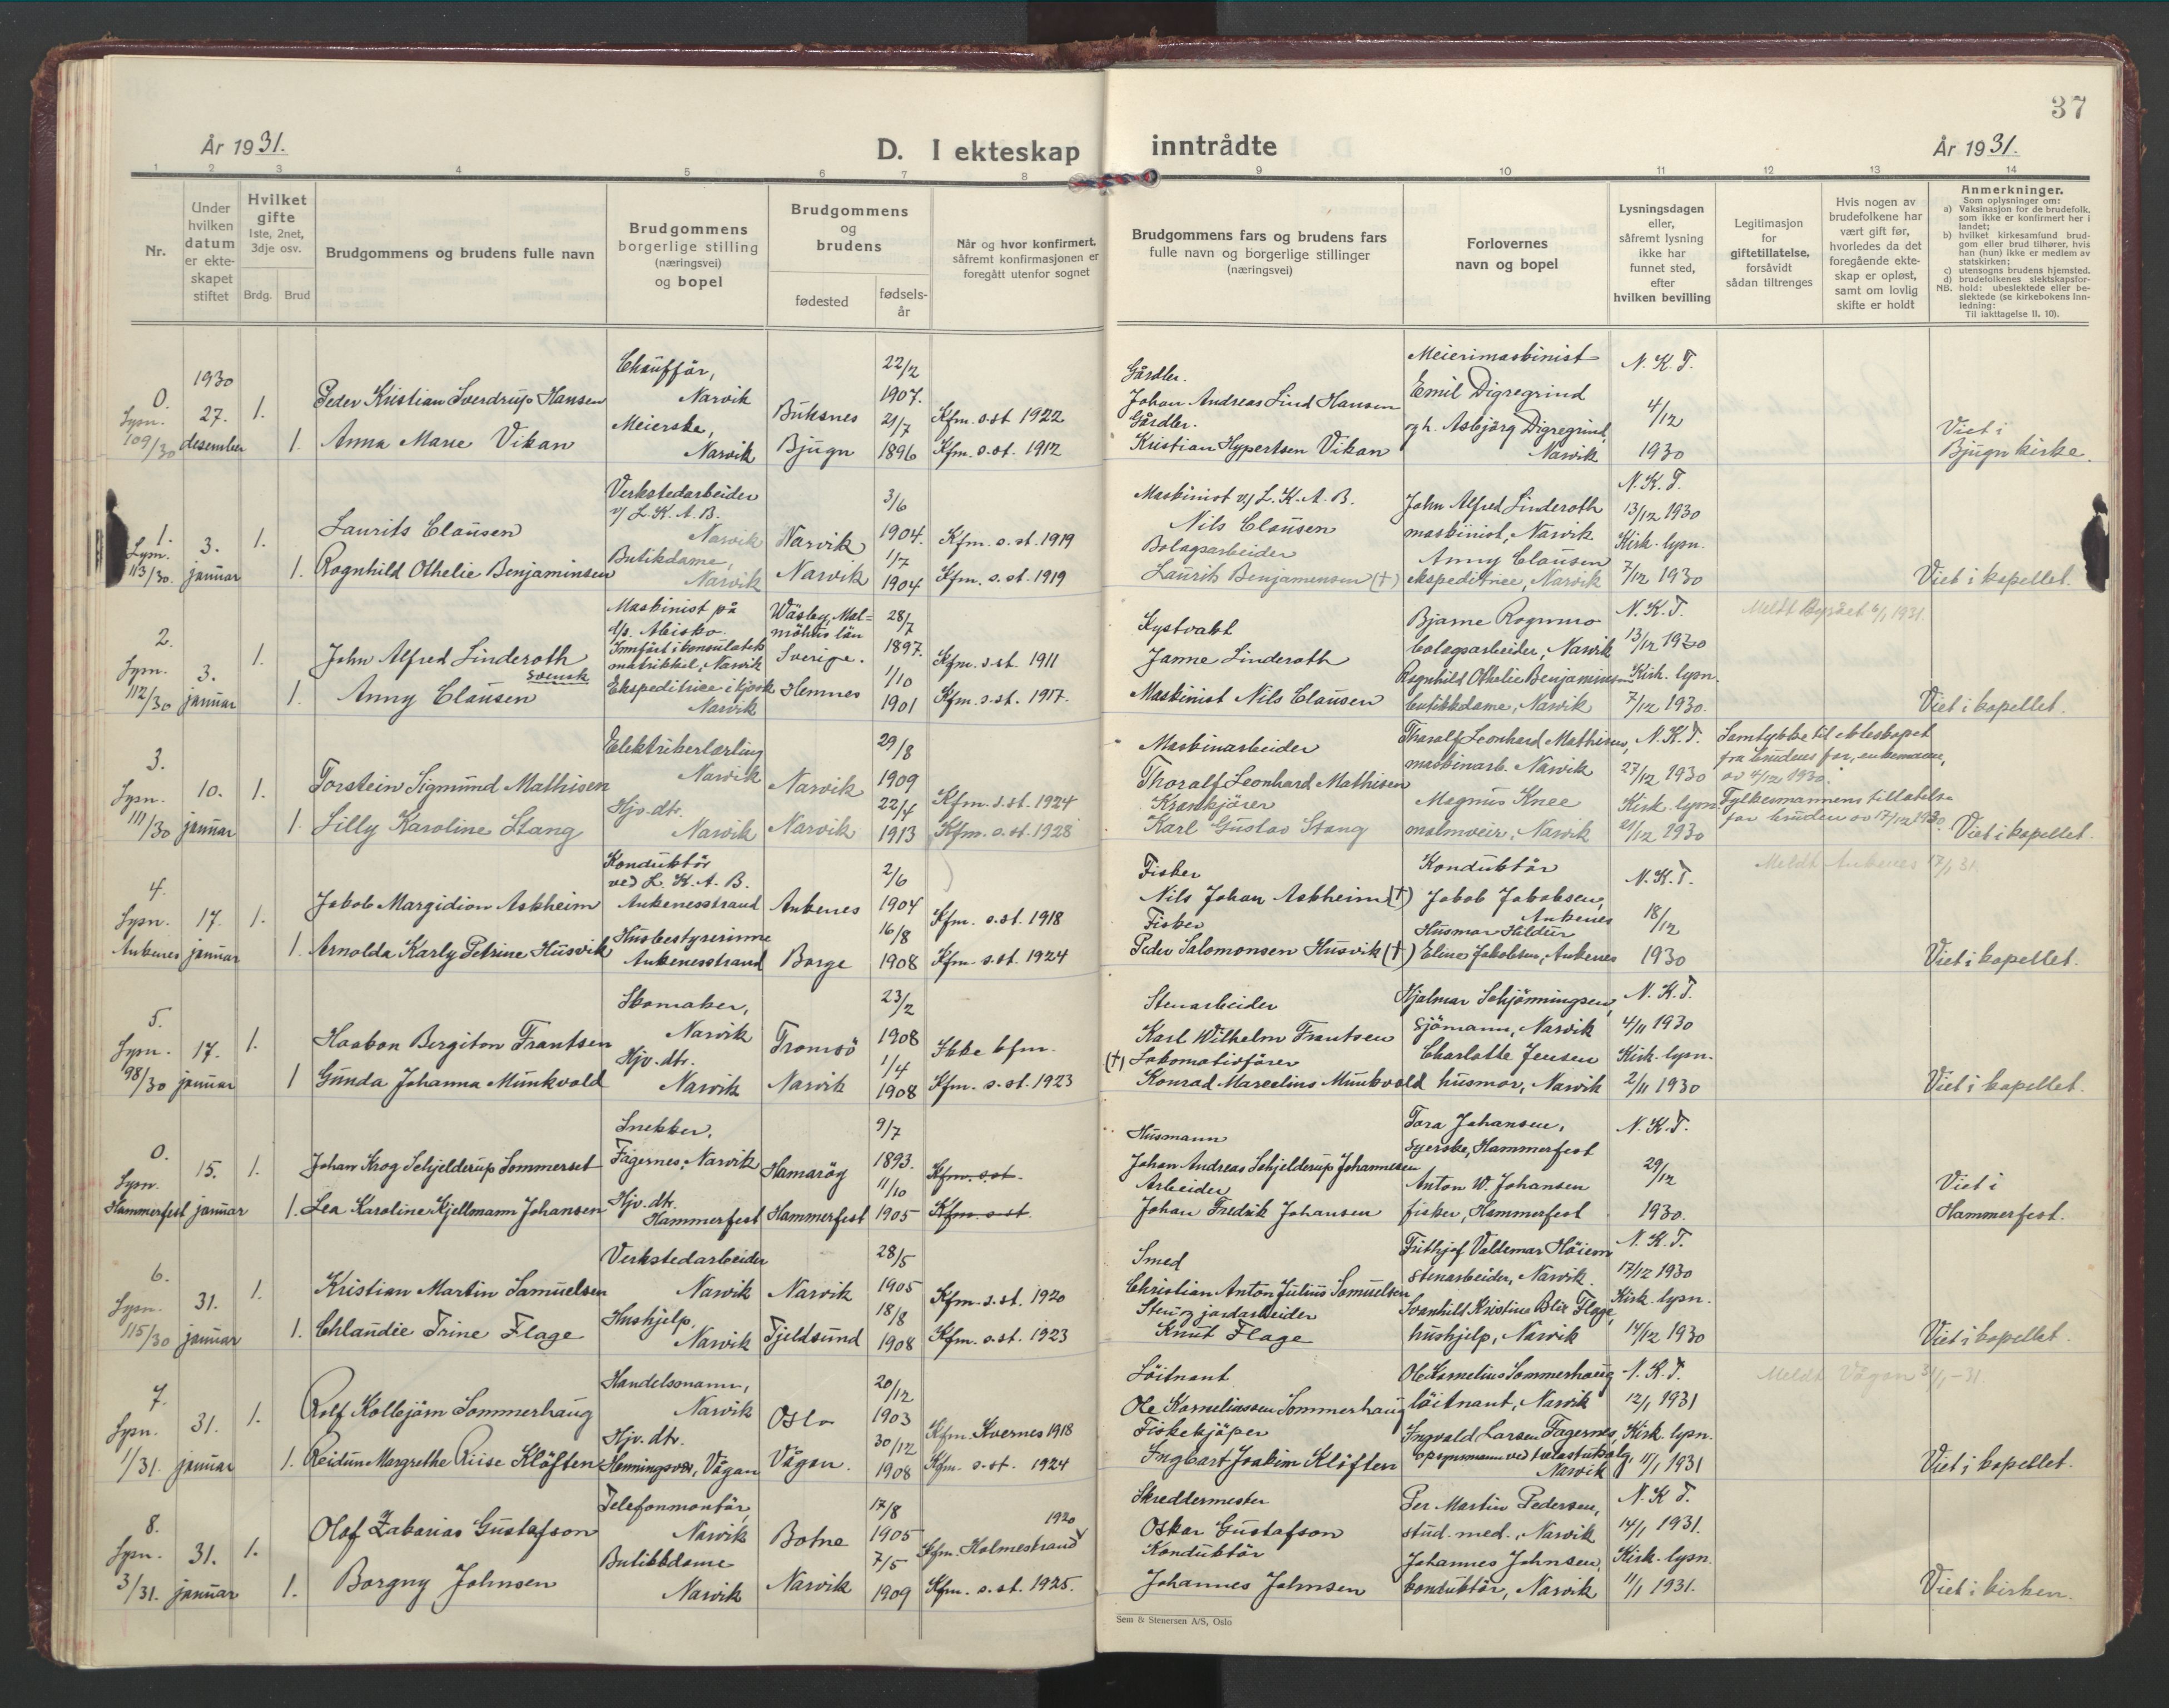 37
År 1931.
D. I ekteskap inntrådte
År 1931.
1 2 3 4 5 6 7 8 9 10 11 12 13 14
Nr.
Under hvilken datum er ekte-skapet stiftet
Hvilket gifte 1ste, 2net, 3dje osv.
Brdg. Brud
Brudgommens og brudens fulle navn
Brudgommens borgerlige stilling (næringsvei) og bopel
Brudgommens og brudens
fødested
fødsels-år
Når og hvor konfirmert, såfremt konfirmasjonen er foregått utenfor sognet
Brudgommens fars og brudens fars fulle navn og borgerlige stillinger (næringsvei)
Forlovernes navn og bopel
Lysningsdagen eller, såfremt lysning ikke har funnet sted, efter hvilken bevilling
Legitimasjon for giftetillatelse, forsåvidt sådan tiltrenges
Hvis nogen av brudefolkene har vært gift før, hvorledes da det foregående ekte-skap er opløst, samt om lovlig skifte er holdt
Anmerkninger.
Som oplysninger om:
a) Vaksinasjon for de brudefolk, som ikke er konfirmert her i landet;
b) hvilket kirkesamfund brud-gom eller brud tilhører, hvis han (hun) ikke er medlem av statskirken;
c) utensogns brudens hjemsted.
d) brudefolkenes slektskapsfor-hold: ubeslektede eller be-slektede (se kirkebokens Inn-ledning:
NB.
Til iakttagelse II, 10).
0. Lysn. 109/30
1930 27. desember
1. Peder Kristian Sverdrup Hansen
Chauffør, Narvik
Buksnes
22/2 1907.
Kfm. s. st. 1922
Gårdbr. Johan Andreas Lind Hansen
Meierimaskinist Emil Digregrind
N. K. T. 4/12 1930
1. Anna Marie Vikan
Meierske, Narvik
Bjugn
21/7 1896
Kfm. s. st. 1912
Gårdbr. Kristian Hypertsen Vikan
og h. Asbjørg Digregrind, Narvik
Viet i Bjugn kirke.
1. Lysn. 113/30.
3. januar
1. Laurits Clausen
Verkstedarbeider v/ L. K. A. B. Narvik
Narvik
3/6 1904.
Kfm. s. st. 1919
Maskinist v/ L. K. A. B. Nils Clausen
John Alfred Linderoth maskinist, Narvik
N. K. T. 13/12 1930
1. Ragnhild Othelie Benjaminsen
Butikdame, Narvik
Narvik
1/7 1904
Kfm. s. st. 1919
Bolagsarbeider Laurits Benjamensen (†)
Anny Clausen ekspeditrice, Narvik
Kirk. lysn. 7/12 1930
Viet i kapellet.
2. Lysn. 112/30
3. januar
1. John Alfred Linderoth svensk
Maskinist på d/s. Abisko. Innført i konsulatets matrikkel, Narvik
Wäsby, Mal-möhus län Sverige.
28/7 1897.
Kfm. s. st. 1911
Kystvakt Janne Linderoth
Bjarne Rognmo bolagsarbeider, Narvik
N. K. T. 13/12 1930
1. Anny Clausen
Ekspeditrice i kjosk Narvik
Hemnes
1/10 1901
Kfm. s. st. 1917.
Maskinist Nils Clausen
Ragnhild Othelie Benjaminsen butikkdame, Narvik
Kirk. lysn. 7/12 1930.
Viet i kapellet.
3. Lysn. 111/30
10. januar
1. Torstein Sigmund Mathisen
Elektrikerlærling Narvik
Narvik
29/8 1909
Kfm. s. st. 1924
Maskinarbeider Thoralf Leonhard Mathisen
Thoralf Leonhard Mathisen, maskinarb. Narvik
N. K. T. 27/12 1930
Samtykke til ekteskapet fra brudens far, enkemann, av 4/12 1930.
1. Lilly Karoline Stang
Hjv. dtr. Narvik
Narvik
22/4 1913
Kfm. s. st. 1928
Krankjører Karl Gustav Stang
Magnus Knee malmveier, Narvik
Kirk. lysn. 21/12 1930
Fylkesmannens tillatelse for bruden av 17/12 1930.
Viet i kapellet.
4. Lysn. Ankenes
17. januar
1. Jakob Margidion Askheim
Konduktør ved L. K. A. B. Ankenesstrand
Ankenes
2/6 1904
Kfm. s. st. 1918
Fisker Nils Johan Askheim (†)
Konduktør Jakob Jakobsen, Ankenes
N. K. T. 18/12 1930
Meldt Ankenes 17/1 31
1. Arnolda Karly Petrine Husvik
Husbestyrerinne Ankenesstrand
Borge
16/8 1908
Kfm. s. st. 1924
Fisker Peder Salomonsen Husvik (†)
Husmor Hildur Eline Jakobsen, Ankenes
Viet i kapellet.
5. Lysn. 98/30
17. januar
1. Haakon Bergiton Frantsen
Skomaker, Narvik
Tromsö
23/2 1908
Ikke kfm.
Stenarbeider Karl Wilhelm Frantsen
Hjalmar Schjönningsen, Sjömann, Narvik
N. K. T. 4/11 1930
1 Gunda Johanna Munkvold
Hjv. dtr. Narvik
Narvik
1/4 1908
Kfm. s. st. 1923
(†) Lokomotivfører Konrad Marcelius Munkvold
Charlotte Jensen husmor, Narvik
Kirk. lysn. 2/11 1930
Viet i kapellet.
0. Lysn. Hammerfest
15. januar
1. Johan Krog Schjelderup Sommerset
Snekker, Fagernes, Narvik
Hamaröy
9/7 1893.
Kfm. s. st.
Husmann Johan Andreas Schjelderup Johannesen
Tora Johansen, syerske, Hammerfest
N. K. T. 29/12 1930.
1. Lea Karoline Kjellmann Johansen
Hjv. dtr. Hammerfest
Hammerfest
11/10 1905
Kfm. s. st.
Arbeider Johan Fredrik Johansen
Anton W. Johansen fisker, Hammerfest
Viet i Hammerfest.
6. Lysn. 115/30
31. januar
1. Kristian Martin Samuelsen
Verkstedarbeider Narvik
Narvik
28/5 1905
Kfm. s. st. 1920
Smed Christian Anton Julius Samuelsen
Frithjof Valdemar Höiem stenarbeider, Narvik.
N. K. T. 17/12 1930
1. Chlaudie Trine Flage
Hushjelp, Narvik
Tjeldsund
18/8 1908
Kfm. s. st. 1923
Sten og jordarbeider Knut Flage
Svanhild Kristine Blix Flage, hushjelp, Narvik
Kirk. lysn. 14/12 1930
Viet i kapellet.
7. Lysn. 1/31.
31. januar
1. Rolf Kolbjörn Sommerhaug
Handelsmann, Narvik
Oslo
20/12 1903
Kfm. Kvernes 1918
Löitnant Ole Korneliussen Sommerhaug
Ole Kornelius Sommerhaug löitnant, Narvik
N. K. T. 12/1 1931
Meldt Vågan 31/1-31.
1. Reidun Margrethe Riise Klöften
Hjv. dtr. Henningsvær, Vågan
Vågan.
30/12 1908
Kfm. s. st. 1924
Fiskekjöper Ingbart Joakim Klöften
Ingvald Larsen Fagernes, opsynsmann ved Narvik
Kirk. lysn. 11/1 1931
Viet i kapellet.
8. Lysn. 3/31.
31. januar
1. Olaf Zakarias Gustafson
Telefonmontör, Narvik
Botne
17/8 1905
Kfm. Holmestrand 1920
Skreddermester Oskar Gustafson
Per Martin Pedersen, stud. med., Narvik
N. K. T. 14/1 1931.
1. Borgny Johnsen
Butikkdame Narvik
Narvik
7/5 1909
Kfm. s. st. 1925.
Konduktör Johannes Johnsen
Johannes Johnsen, konduktör, Narvik
Kirk. lysn. 11/1 1931.
Viet i kirken.
Sem & Stenersen A/S, Oslo